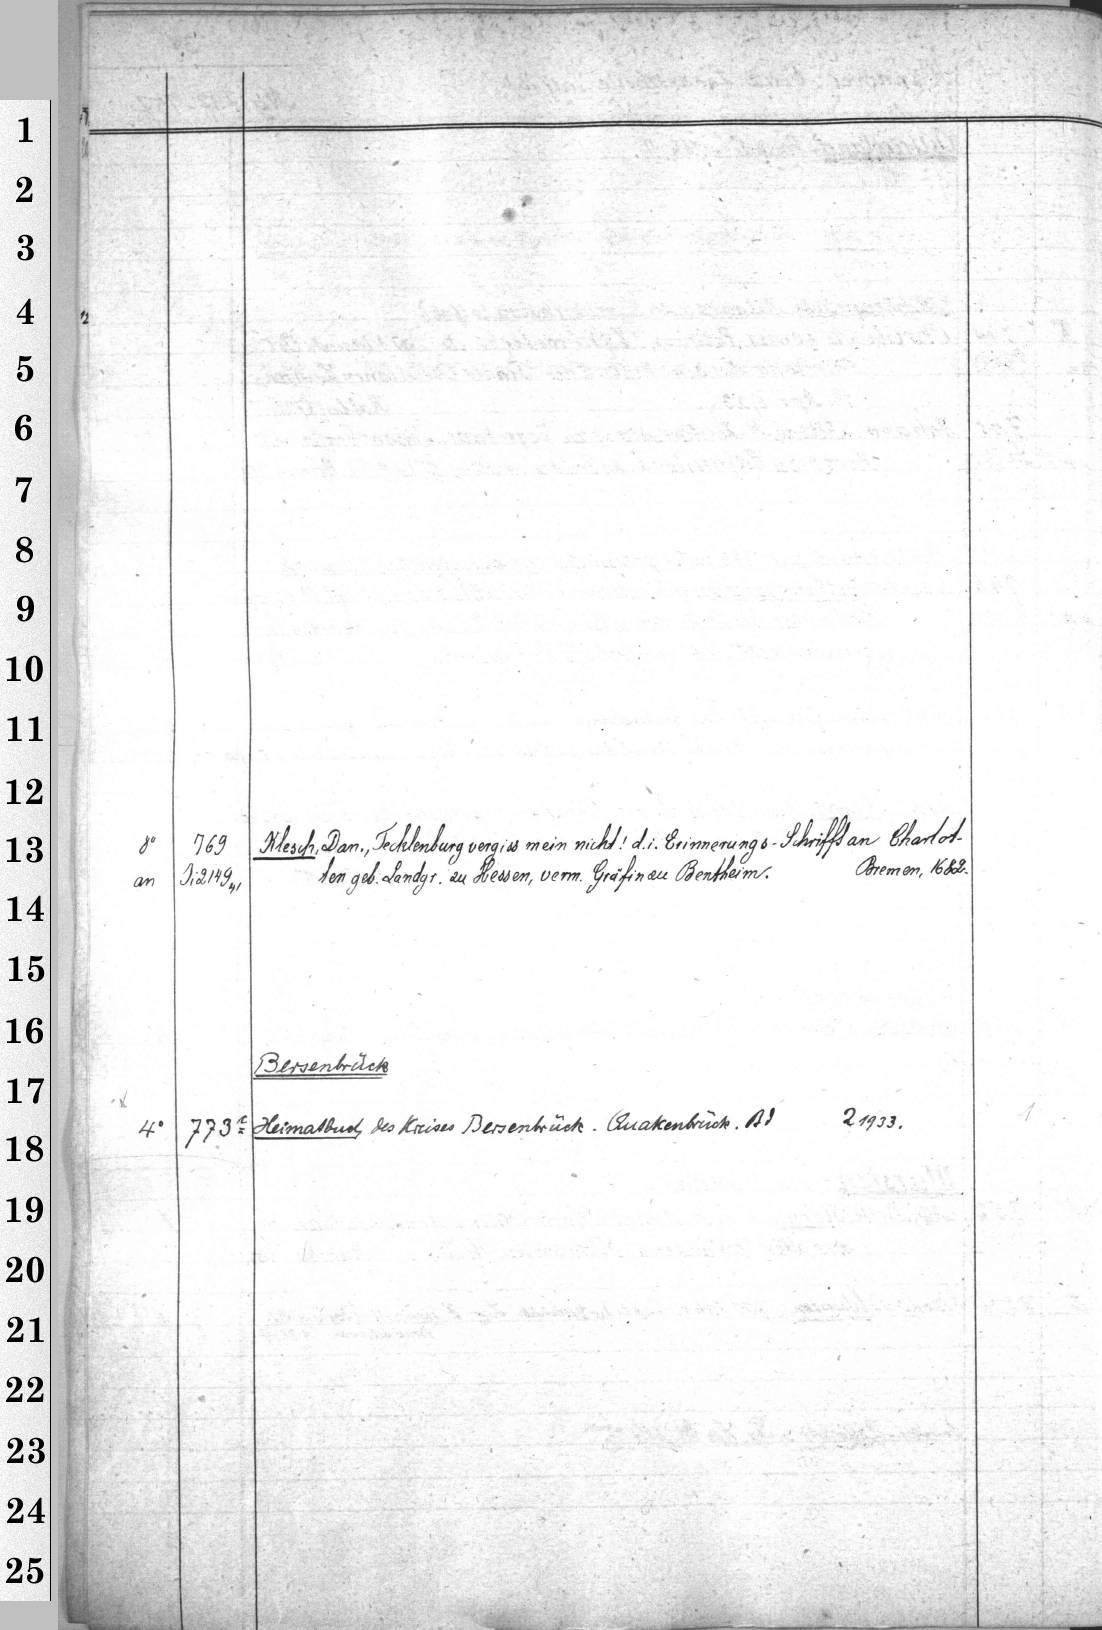 1
2
3
4
5
6
7
8
9
10
11
12
13
14
15
16
17
18
19
20
21
22
23
24
25
8° 769 Klesch, Dan., Tecklenburg vergiss mein nicht! d.i. Erinnerungs-Schrifft an Charlot-
an Di2149,41 ten geb. Landgr. zu Hessen, verm. Gräfin zu Bentheim. Bremen, 1682.
Bersenbrück
4° 773 Heimatbuch des Kreises Bersenbrück. Quakenbrück. Bd 2 1933.